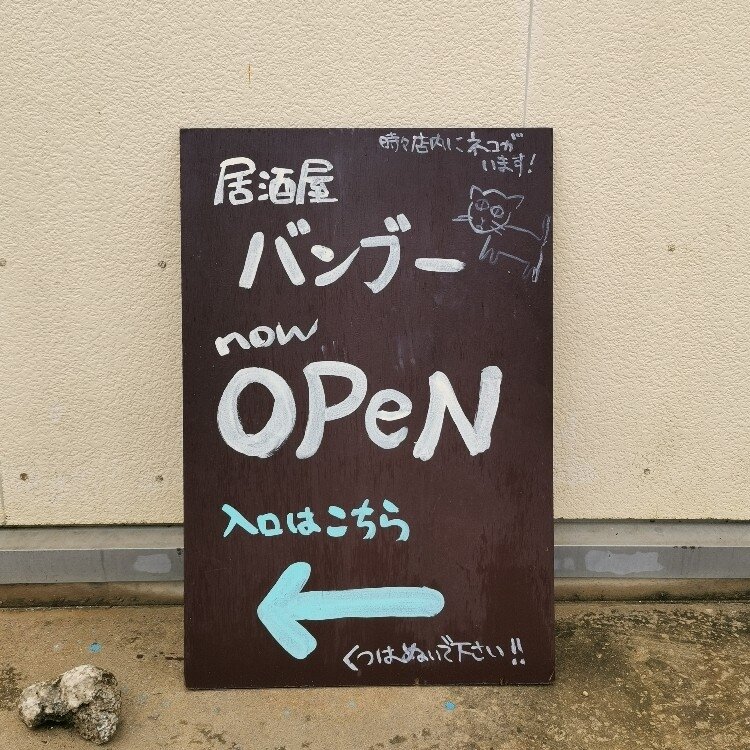 時々店内にネコが
います!
居酒屋
バンブー
now
OPeN
入口はこちら
くつはぬいで下さい!!